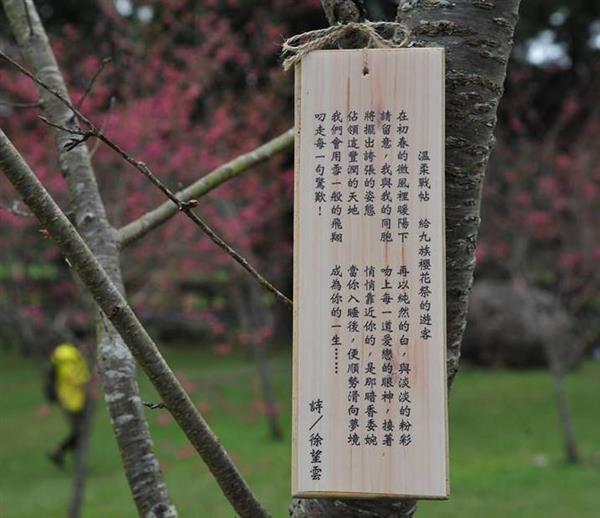 溫柔戰帖　給九族櫻花祭的遊客
在初春的微風裡暖陽下
請留意，我與我的同胞
將擺出誇張的姿態
佔領這豐潤的天地
我們會用雪一般的飛翔
叨走每一句驚歎！
再以純然的白，與淡淡的粉彩
吻上每一道愛戀的眼神，接著
悄悄靠近你的，是那暗香委婉
當你入睡後，便順勢滑向夢境
成為你的一生……
詩／徐望雲